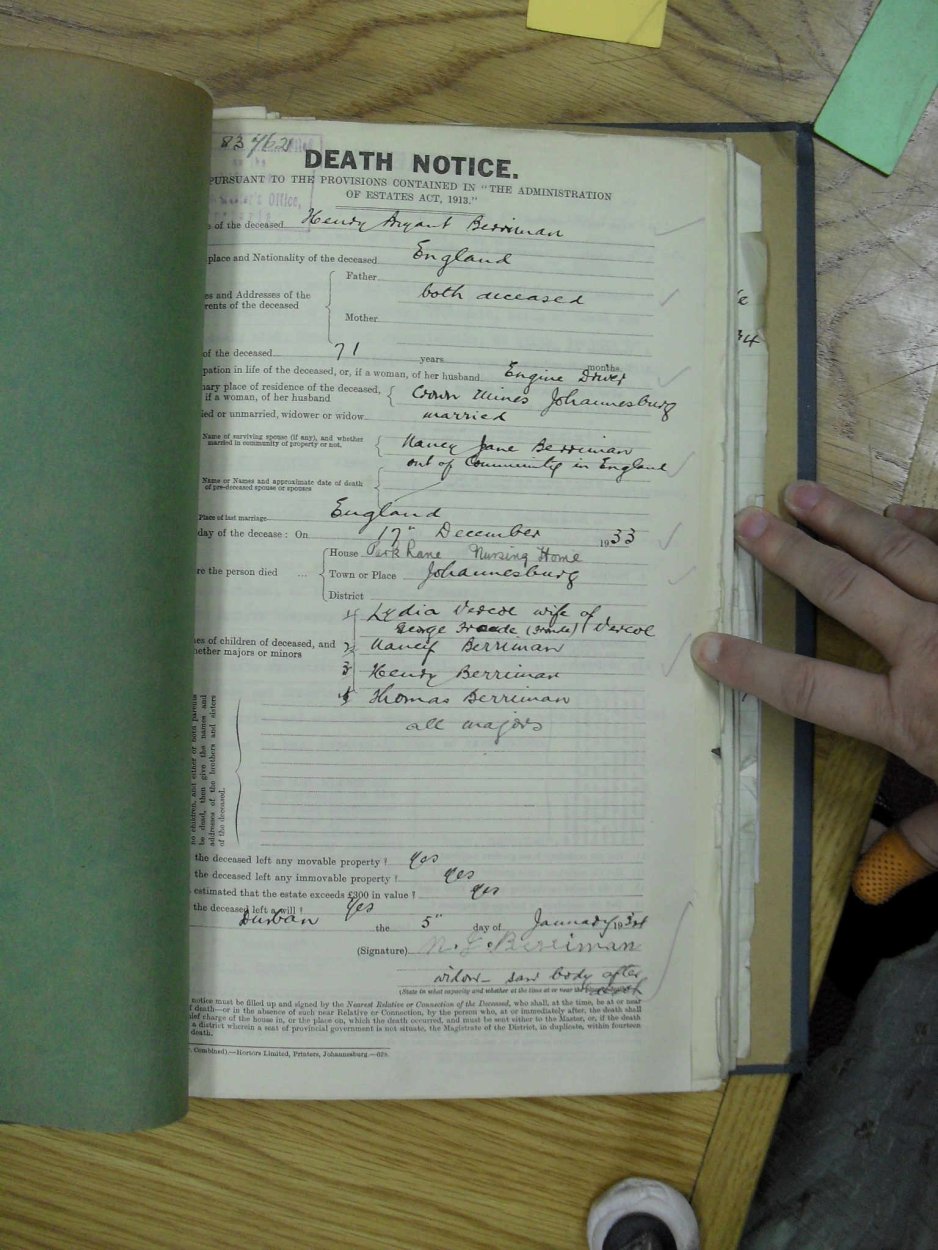 83462
DEATH NOTICE.
PURSUANT TO THE PROVISIONS CONTAINED IN "THE ADMINISTRATION
OF ESTATES ACT, 1913."
's Office,
of the deceased Henry Bryant Berriman
place and Nationality of the deceased England
Father
es and Addresses of the
rents of the deceased
both deceased
Mother
of the deceased 71 years months
pation in life of the deceased, or, if a woman, of her husband Engine Driver
ary place of residence of the deceased,
if a woman, of her husband
Crown Mines Johannesburg
ied or unmarried, widower or widow married
Name of surviving spouse (if any), and whether
married in community of property or not.
Nancy Jane Berriman
out of Community in England
Name or Names and approximate date of death
of pre-deceased spouse or spouses
Place of last marriage England
day of the decease: On 17" December 1933
House Park Lane Nursing Home
re the person died ... Town or Place Johannesburg
District
1 Lydia Vercoe wife of
George Froude (Froude) Vercoe
es of children of deceased, and
hether majors or minors
2 Nancy Berriman
3 Henry Berriman
4 Thomas Berriman
all majors
no children, and either or both parents
be dead, then give the names and
addresses of the brothers and sisters
of the deceased.
the deceased left any movable property? Yes
the deceased left any immovable property? Yes
estimated that the estate exceeds £300 in value? Yes
the deceased left a will? Yes
Durban the 5" day of January 1934
(Signature) N. J. Berriman
widow saw body after
death
(State in what capacity and whether at the time at or near the
notice must be filled up and signed by the Nearest Relative or Connection of the Deceased, who shall, at the time, be at or near
f death—or in the absence of such near Relative or Connection, by the person who, at or immediately after, the death shall
ief charge of the house in, or the place on, which the death occurred, and must be sent either to the Master, or, if the death
a district wherein a seat of provincial government is not situate, the Magistrate of the District, in duplicate, within fourteen
death.
Combined).—Hortors Limited, Printers, Johannesburg.
34